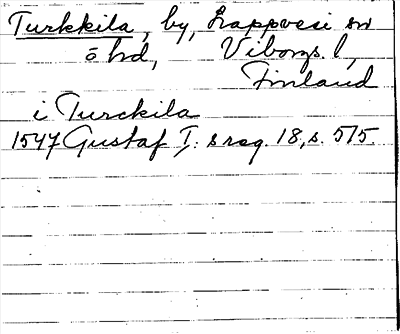 Turkkila, by, Lappvesi sn
ö hd, Viborgs l,
Finland
i Turckila
1547 Gustaf I: s reg. 18, s. 515.